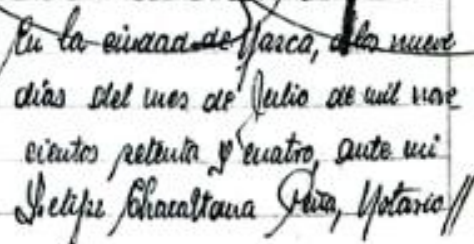 En la ciudad de Nasca, a los nueve
días del mes de Julio de mil nove
cientos setenta y cuatro, ante mi
Felipe Chacaltana Peña, Notario//